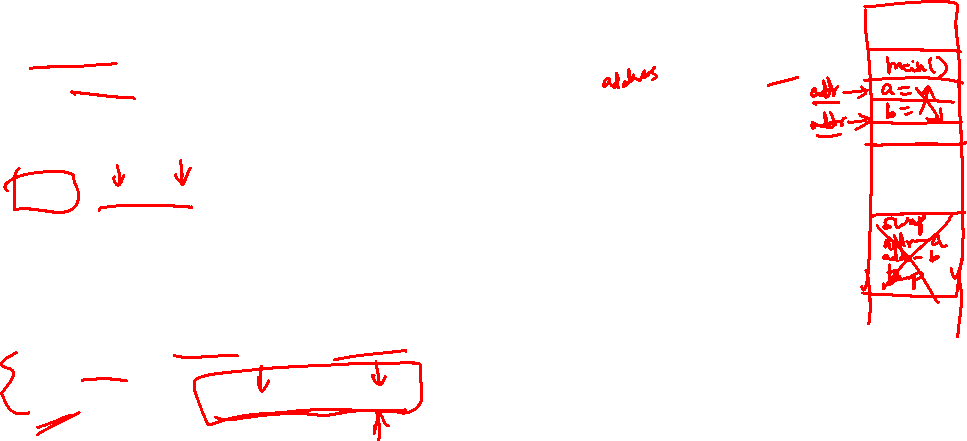 address
main()
addr
a =
b =
addr
swap
addr-a
addr- b